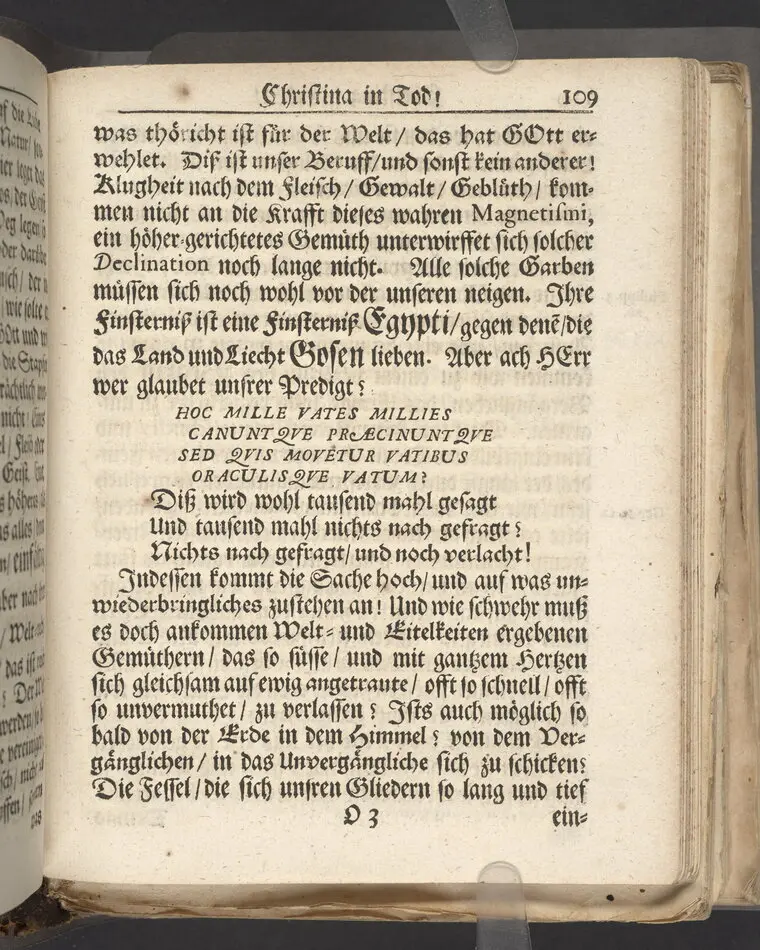 Christina in Tod! 109
was thöricht ist für der Welt / das hat GOtt er-
wehlet. Diß ist unser Beruff/und sonst kein anderer!
Klugheit nach dem Fleisch / Gewalt / Geblüth / kom-
men nicht an die Krafft dieses wahren Magnetismi,
ein höher-gerichtetes Gemüth unterwirffet sich solcher
Declination noch lange nicht. Alle solche Garben
müssen sich noch wohl vor der unseren neigen. Ihre
Finsterniß ist eine Finsterniß Egypti/gegen denẽ/die
das Land und Liecht Gosen lieben. Aber ach HErr
wer glaubet unsrer Predigt?
HOC MILLE VATES MILLIES
CANUNTQVE PRÆCINUNTQVE
SED QVIS MOVETUR VATIBUS
ORACULISQVE VATUM?
Diß wird wohl tausend mahl gesagt
Und tausend mahl nichts nach gefragt?
Nichts nach gefragt/ und noch verlacht!
Indessen kommt die Sache hoch/ und auf was un-
wiederbringliches zustehen an! Und wie schwehr muß
es doch ankommen Welt- und Eitelkeiten ergebenen
Gemüthern / das so süsse / und mit gantzem Hertzen
sich gleichsam auf ewig angetraute / offt so schnell / offt
so unvermuthet / zu verlassen? Ists auch möglich so
bald von der Erde in dem Himmel? von dem Ver-
gänglichen / in das Unvergängliche sich zu schicken?
Die Fessel / die sich unsren Gliedern so lang und tief
O 3 ein-